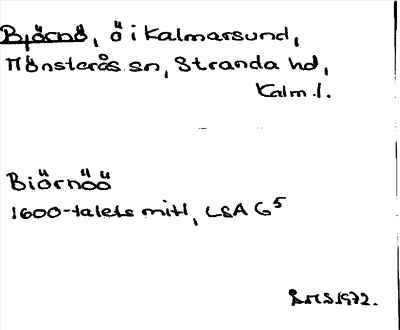 Björnö, ö i Kalmarsund,
Mönsterås sn, Stranda hd,
Kalm. l.
Biörnöö
1600-talets mitt, LSA G5
ÅMS 1972.